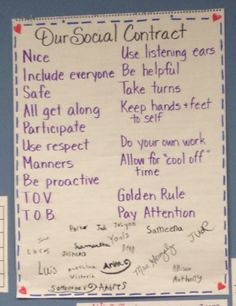 Our Social Contract
Nice
Include everyone
Safe
All get along
Participate
Use respect
Manners
Be proactive
T.O.V.
T.O.B.
Use listening ears
Be helpful
Take turns
Keep hands + feet
to self
Do your own work
Allow for "cool off"
time
Golden Rule
Pay Attention
Sameena
Luis
Victoria
Allison
Anthony